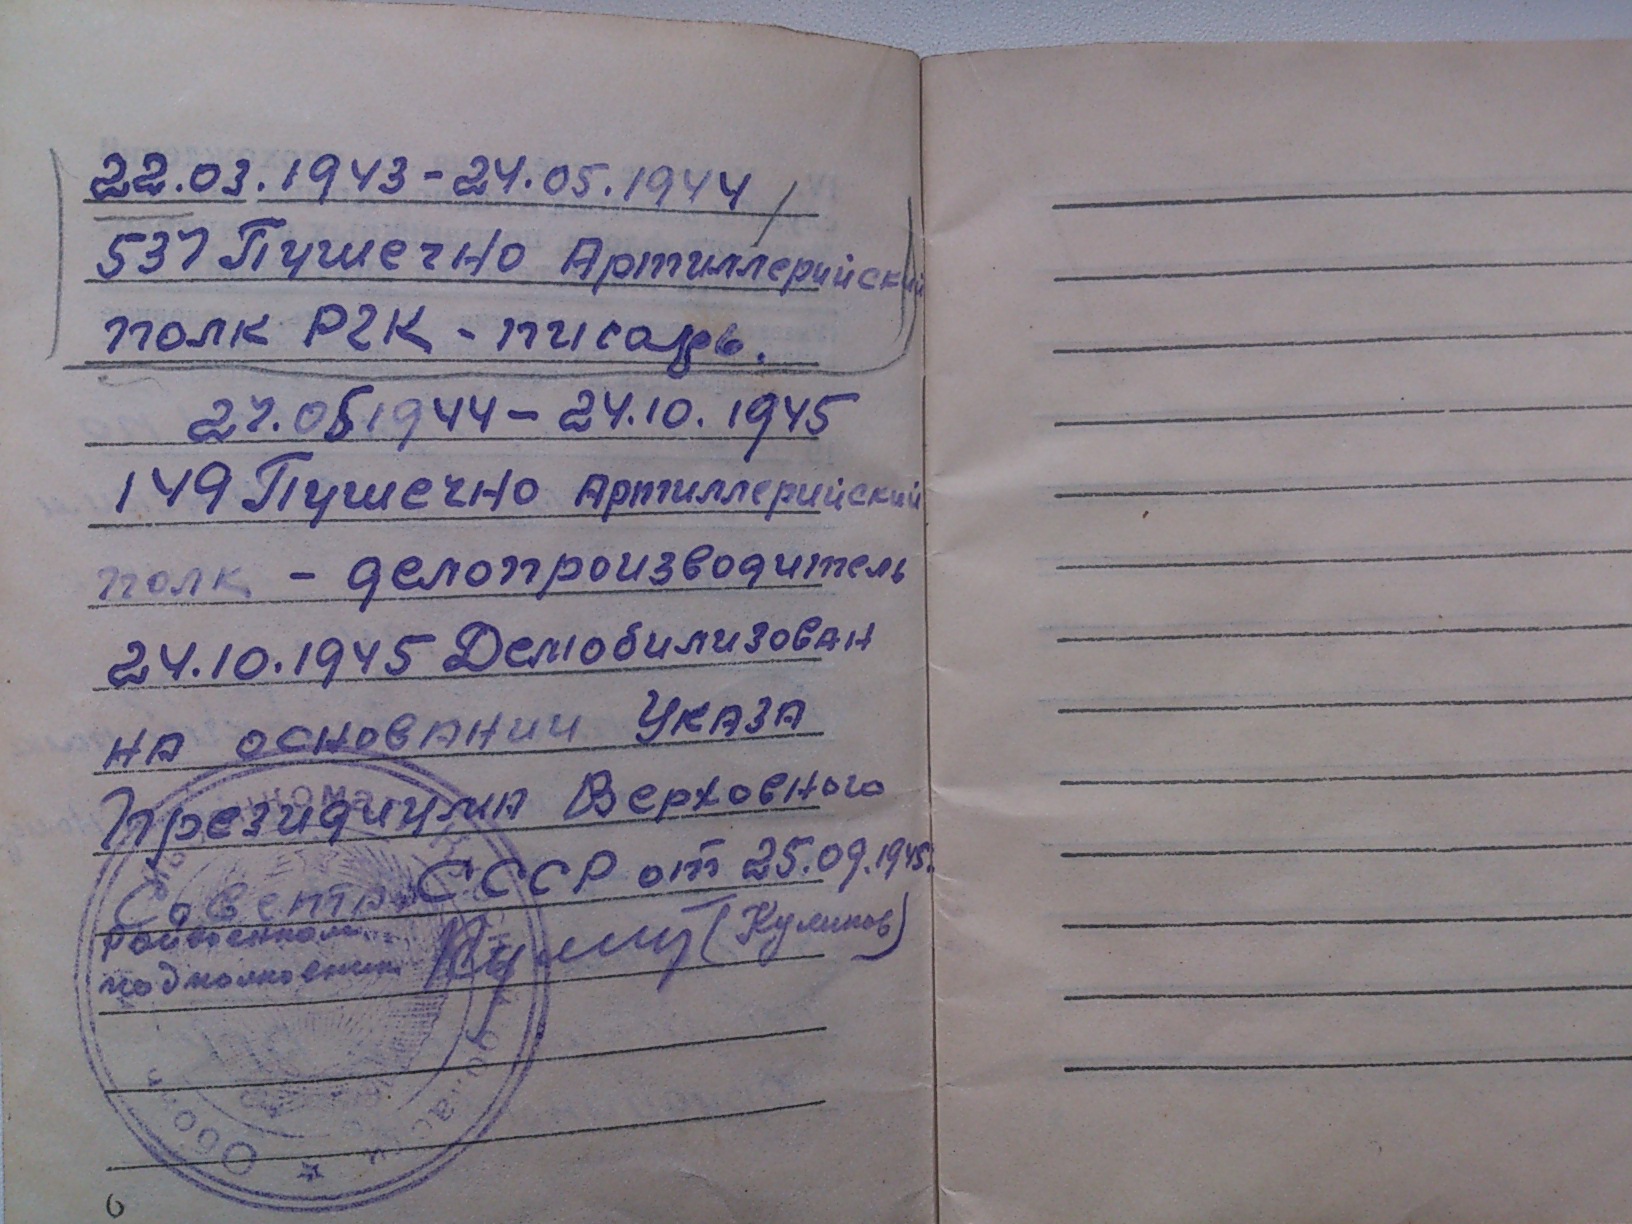 22.03.1943 - 24.05.1944
537 Пушечно Артиллерийский
полк РГК - писарь.
27.05.1944 - 24.10.1945
149 Пушечно Артиллерийский
полк - делопроизводитель
24.10.1945 Демобилизован
на основании Указа
Президиума Верховного
Совета СССР от 25.09.1945.
Райвоенком
подполковник (Куликов)
6